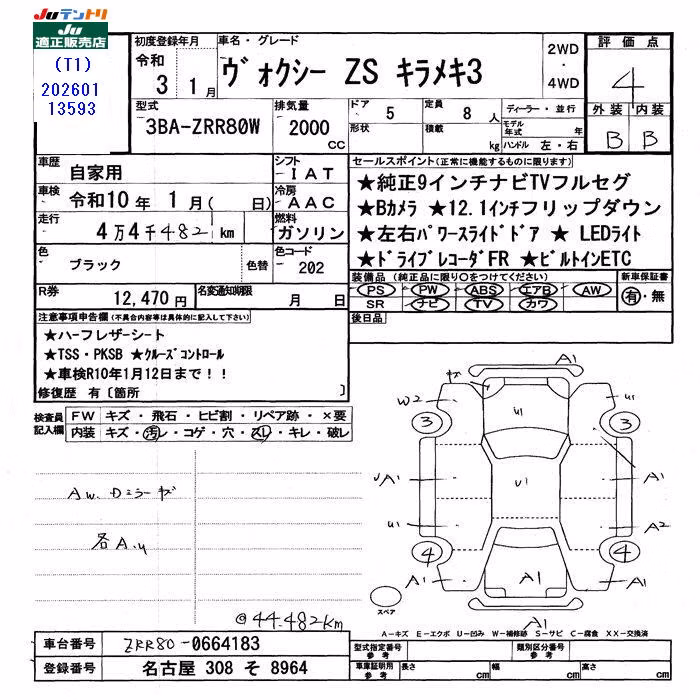 Juテントリ
Ju
適正販売店
(T1)
202601
13593
初度登録年月
令和
3 1月
車名・グレード
ヴォクシー ZS キラメキ3
2WD
・
4WD
評価点
4
外装 内装
B B
型式
3BA-ZRR80W
排気量
2000
CC
ドア 5
定員 8 人
形状
積載 kg
ディーラー・並行
モデル年式 年
ハンドル 左・右
車歴 自家用
シフト IAT
車検 令和10年 1月( 日)
冷房 AAC
走行 4万4千482 km
燃料 ガソリン
色 ブラック 色替
色コード 202
R券 12,470 円
名変通知期限 月 日
セールスポイント(正常に機能するものに限ります)
★純正9インチナビTVフルセグ
★Bカメラ ★12.1インチフリップダウン
★左右パワースライドドア ★ LEDライト
★ドライブレコーダFR ★ビルトインETC
装備品(純正品に限り○をつけてください)
PS PW ABS エアB AW
SR ナビ TV カワ
新車保証書
有・無
後日品
注意事項申告欄(不具合内容等は具体的に記入して下さい)
★ハーフレザーシート
★TSS・PKSB ★クルーズコントロール
★車検R10年1月12日まで!!
修復歴 有〔箇所 〕
検査員
記入欄
FW キズ・飛石・ヒビ割・リペア跡・×要
内装 キズ・汚レ・コゲ・穴・スレ・キレ・破レ
AW. Dミラーキズ
各A.U
@44.482km
A1
キズ
W2
U1
U1
3
3
A1
U1
A1
U1
A2
4
4
A1
A1
A1
A1
スペア
A-キズ E-エクボ U-凹み W-補修跡 S-サビ C-腐食 XX-交換済
車台番号 ZRR80-0664183
登録番号 名古屋 308 そ 8964
型式指定番号
参考
類別区分番号
参考
車庫証明用
参考
長さ cm 幅 cm 高さ cm